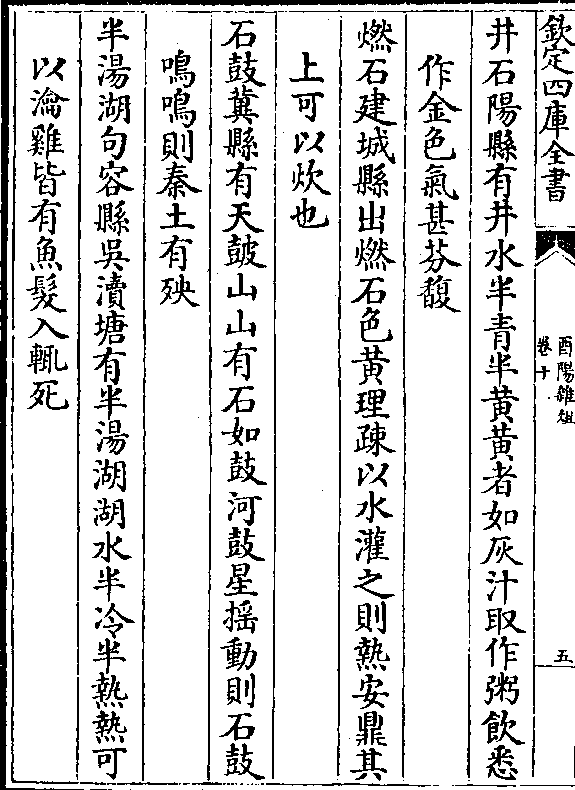 欽定四庫全書
酉陽雜俎
卷十
五
井石陽縣有井水半青半黃黃者如灰汁取作粥飲悉
作金色氣甚芬馥
燃石建城縣出燃石色黃理疎以水灌之則熱安鼎其
上可以炊也
石鼓兾縣有天鼓山山有石如鼓河鼓星揺動則石鼓
鳴鳴則秦土有殃
半湯湖句容縣吳瀆塘有半湯湖湖水半冷半熱熱可
以瀹雞皆有魚髮入輒死